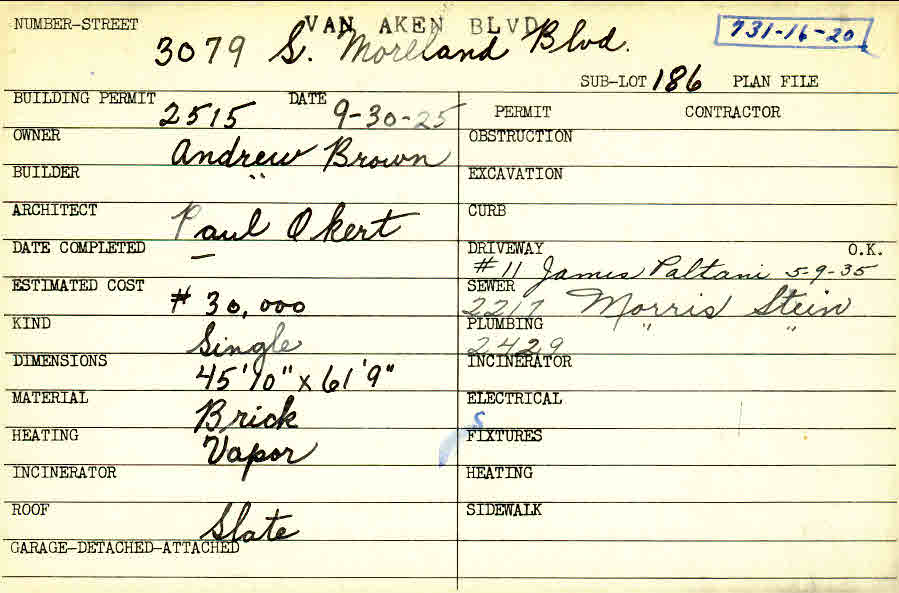 NUMBER-STREET VAN AKEN BLVD. 731-16-20
3079 S. Moreland Blvd.
SUB-LOT 186 PLAN FILE
BUILDING PERMIT 2515 DATE 9-30-25
PERMIT CONTRACTOR
OWNER Andrew Brown
OBSTRUCTION
BUILDER "
EXCAVATION
ARCHITECT Paul Okert
CURB
DATE COMPLETED —
DRIVEWAY O.K.
#11 James Paltani 5-9-35
ESTIMATED COST # 30,000
SEWER
2217 Morris Stein
KIND Single
PLUMBING " "
2429
DIMENSIONS 45'10" x 61'9"
INCINERATOR
MATERIAL Brick
ELECTRICAL
HEATING Vapor
FIXTURES
INCINERATOR
HEATING
ROOF Slate
SIDEWALK
GARAGE-DETACHED-ATTACHED